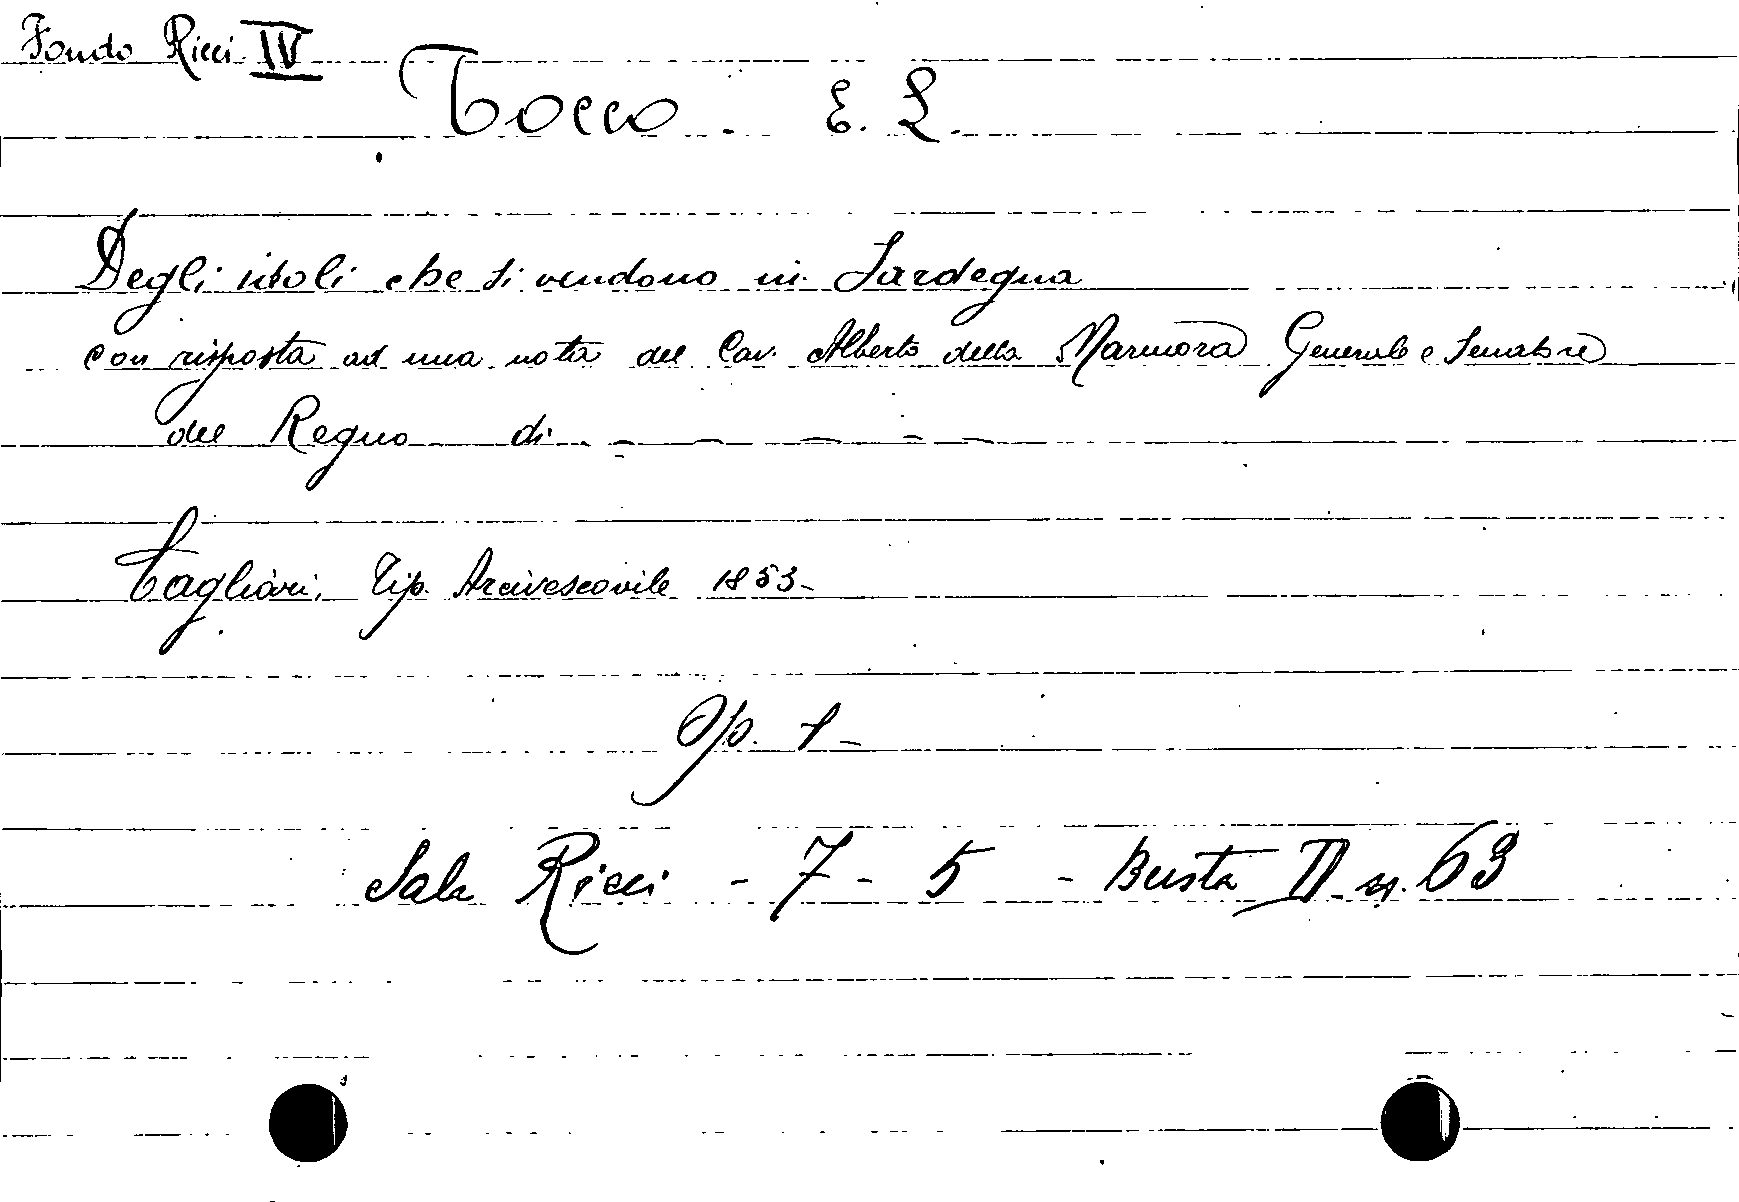 Fondo Ricci IV
Tocco. E. L.
Degli idoli che si vendono in Sardegna
con risposta ad una nota del Cav. Alberto della Marmora Generale e Senatore
del Regno di - - - - -
Cagliari, Tip. Arcivescovile 1853-
Op. 1-
Sala Ricci - 7 - 5 - Busta II n. 63